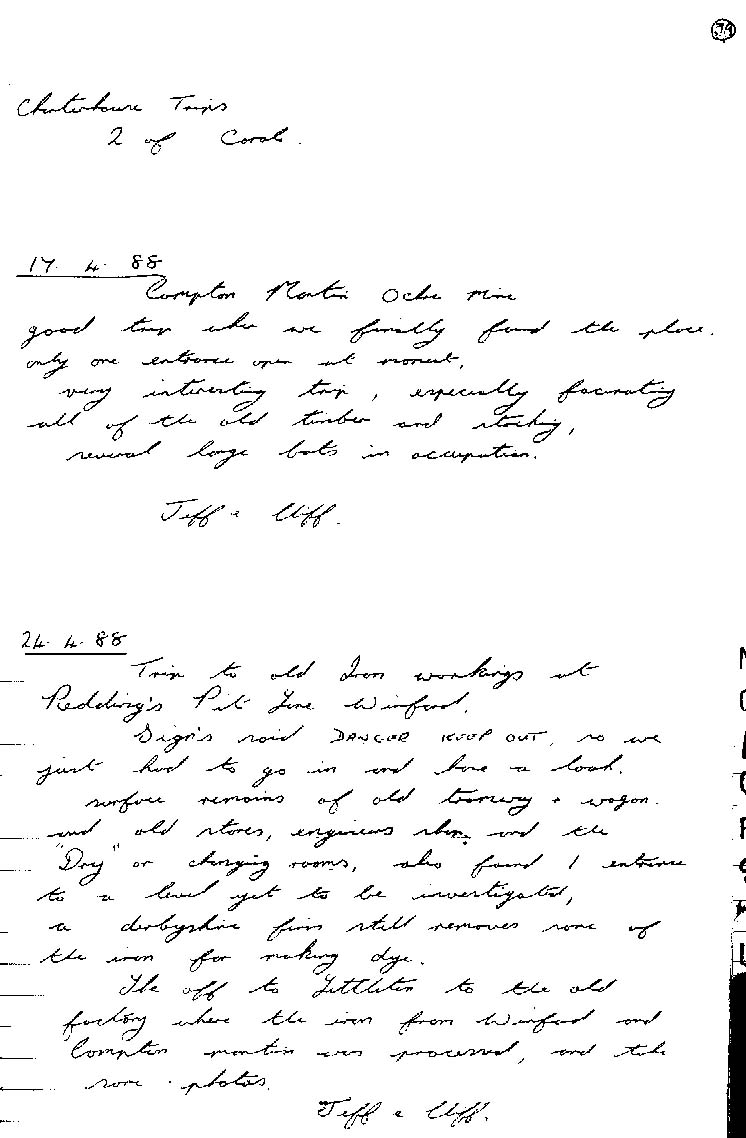 74
Charterhouse Trips
2 of Coral.
17. 4. 88
Compton Martin Ochre Mine
good trip when we finally found the place.
only one entrance open at moment,
very interesting trip, especially facinating
all of the old timber and stacking,
several large bats in occupation.
Jeff & Cliff.
24. 4. 88
Trip to old Iron workings at
Redding's Pit Lane Winford.
Sign's said DANGER KEEP OUT, so we
just had to go in and have a look.
surface remains of old tramway + wagon.
and old stores, engineers shop, and the
"Dry" or changing rooms, also found 1 entrance
to a level yet to be investigated,
a derbyshire firm still removes some of
the iron for making dye.
The off to Littleton to the old
factory where the iron from Winford and
Compton martin was processed, and take
some photos.
Jeff & Cliff.